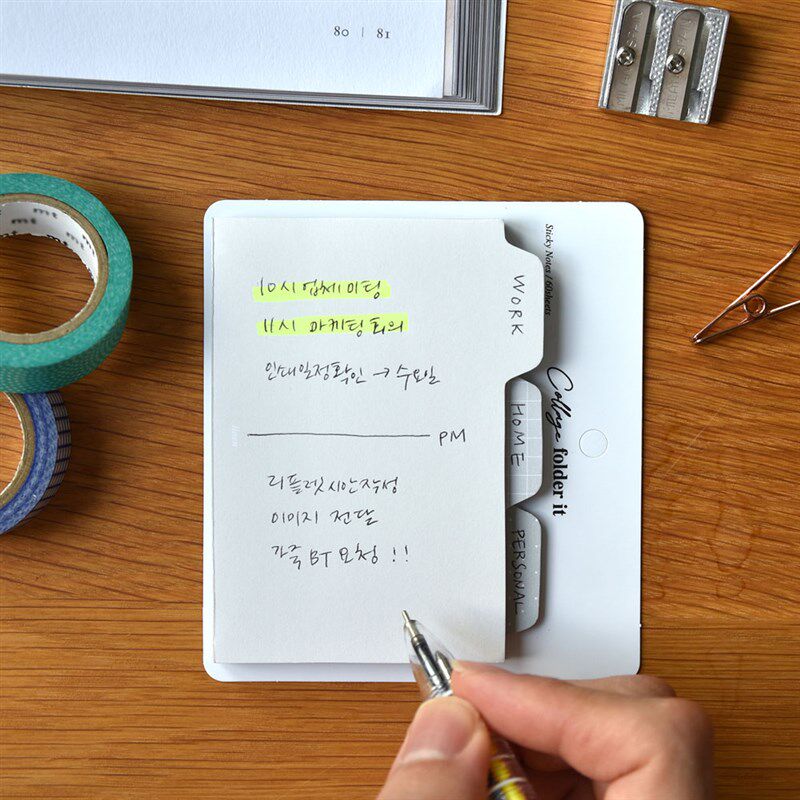 80 | 81
mt
mt
10시 업체미팅
11시 마케팅회의
인쇄일정확인 → 수요일
PM
리플렛시안작성
이미지 전달
가죽 BT 요청 !!
WORK
HOME
PERSONAL
Sticky Notes / 60sheets
Collage folder it